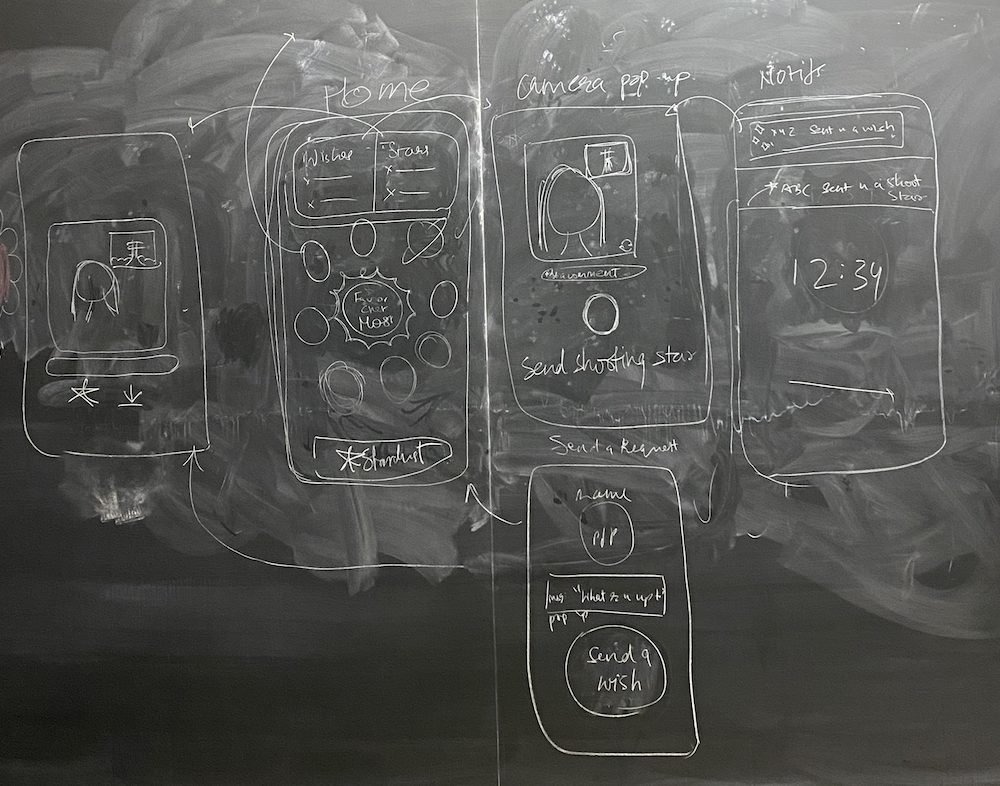 Home
Wishes
Stars
x
x
x
x
Chat
MOST
Stardust
Camera pop up
Send shooting star
Notifs
XYZ Sent u a wish
ABC Sent u a shoot
Star
12:34
Send a Request
name
PfP
msg "What u up to"
pop up
Send a
wish